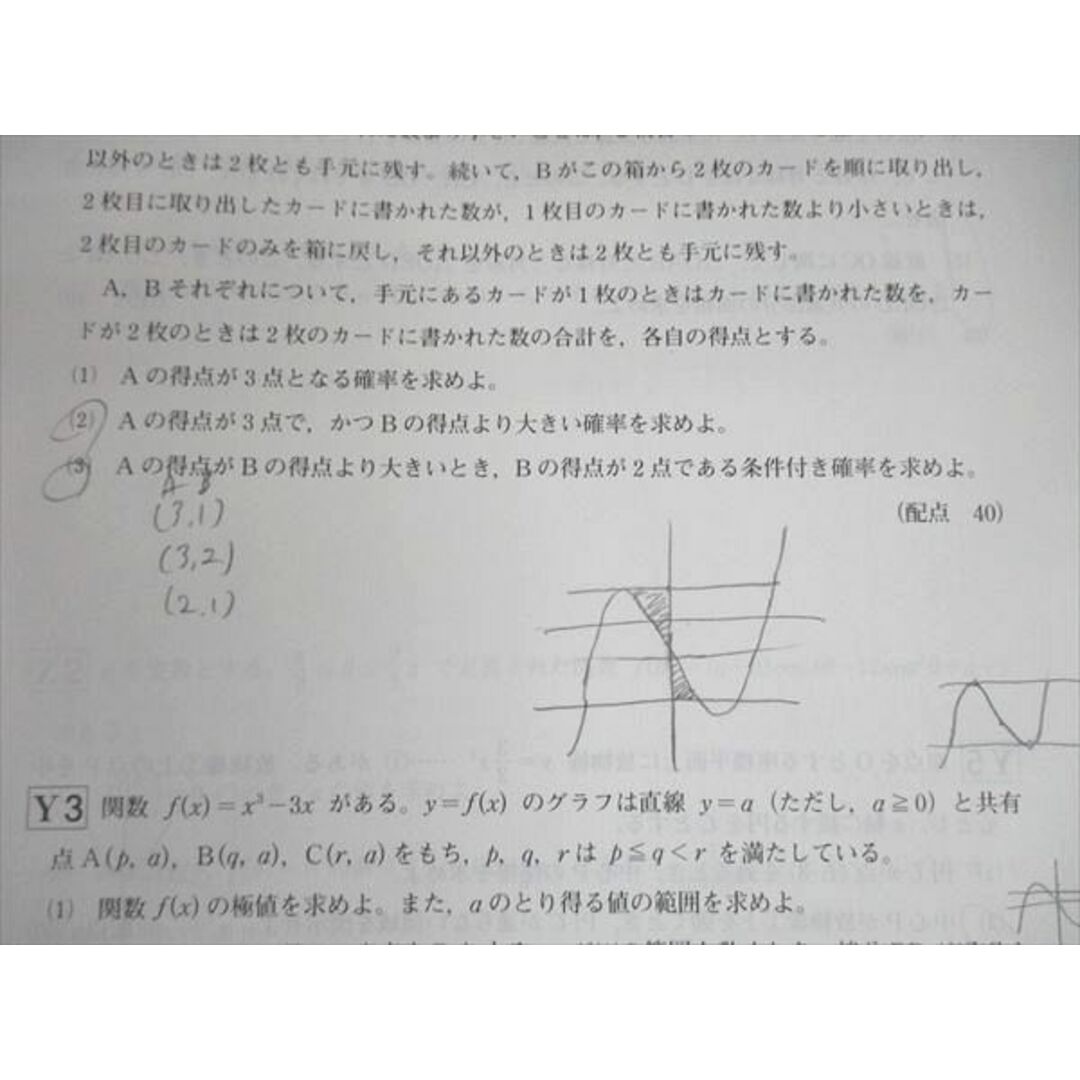 以外のときは2枚とも手元に残す。続いて，Bがこの箱から2枚のカードを順に取り出し，
2枚目に取り出したカードに書かれた数が，1枚目のカードに書かれた数より小さいときは，
2枚目のカードのみを箱に戻し，それ以外のときは2枚とも手元に残す。
A，Bそれぞれについて，手元にあるカードが1枚のときはカードに書かれた数を，カー
ドが2枚のときは2枚のカードに書かれた数の合計を，各自の得点とする。
(1) Aの得点が3点となる確率を求めよ。
(2) Aの得点が3点で，かつBの得点より大きい確率を求めよ。
(3) Aの得点がBの得点より大きいとき，Bの得点が2点である条件付き確率を求めよ。
A B
(3,1)
(配点 40)
(3,2)
(2,1)
Y3 関数 f(x)=x³−3x がある。y=f(x) のグラフは直線 y=a（ただし，a≧0）と共有
点A(p, a)，B(q, a)，C(r, a)をもち，p，q，rは p≦q<r を満たしている。
(1) 関数 f(x) の極値を求めよ。また，aのとり得る値の範囲を求めよ。